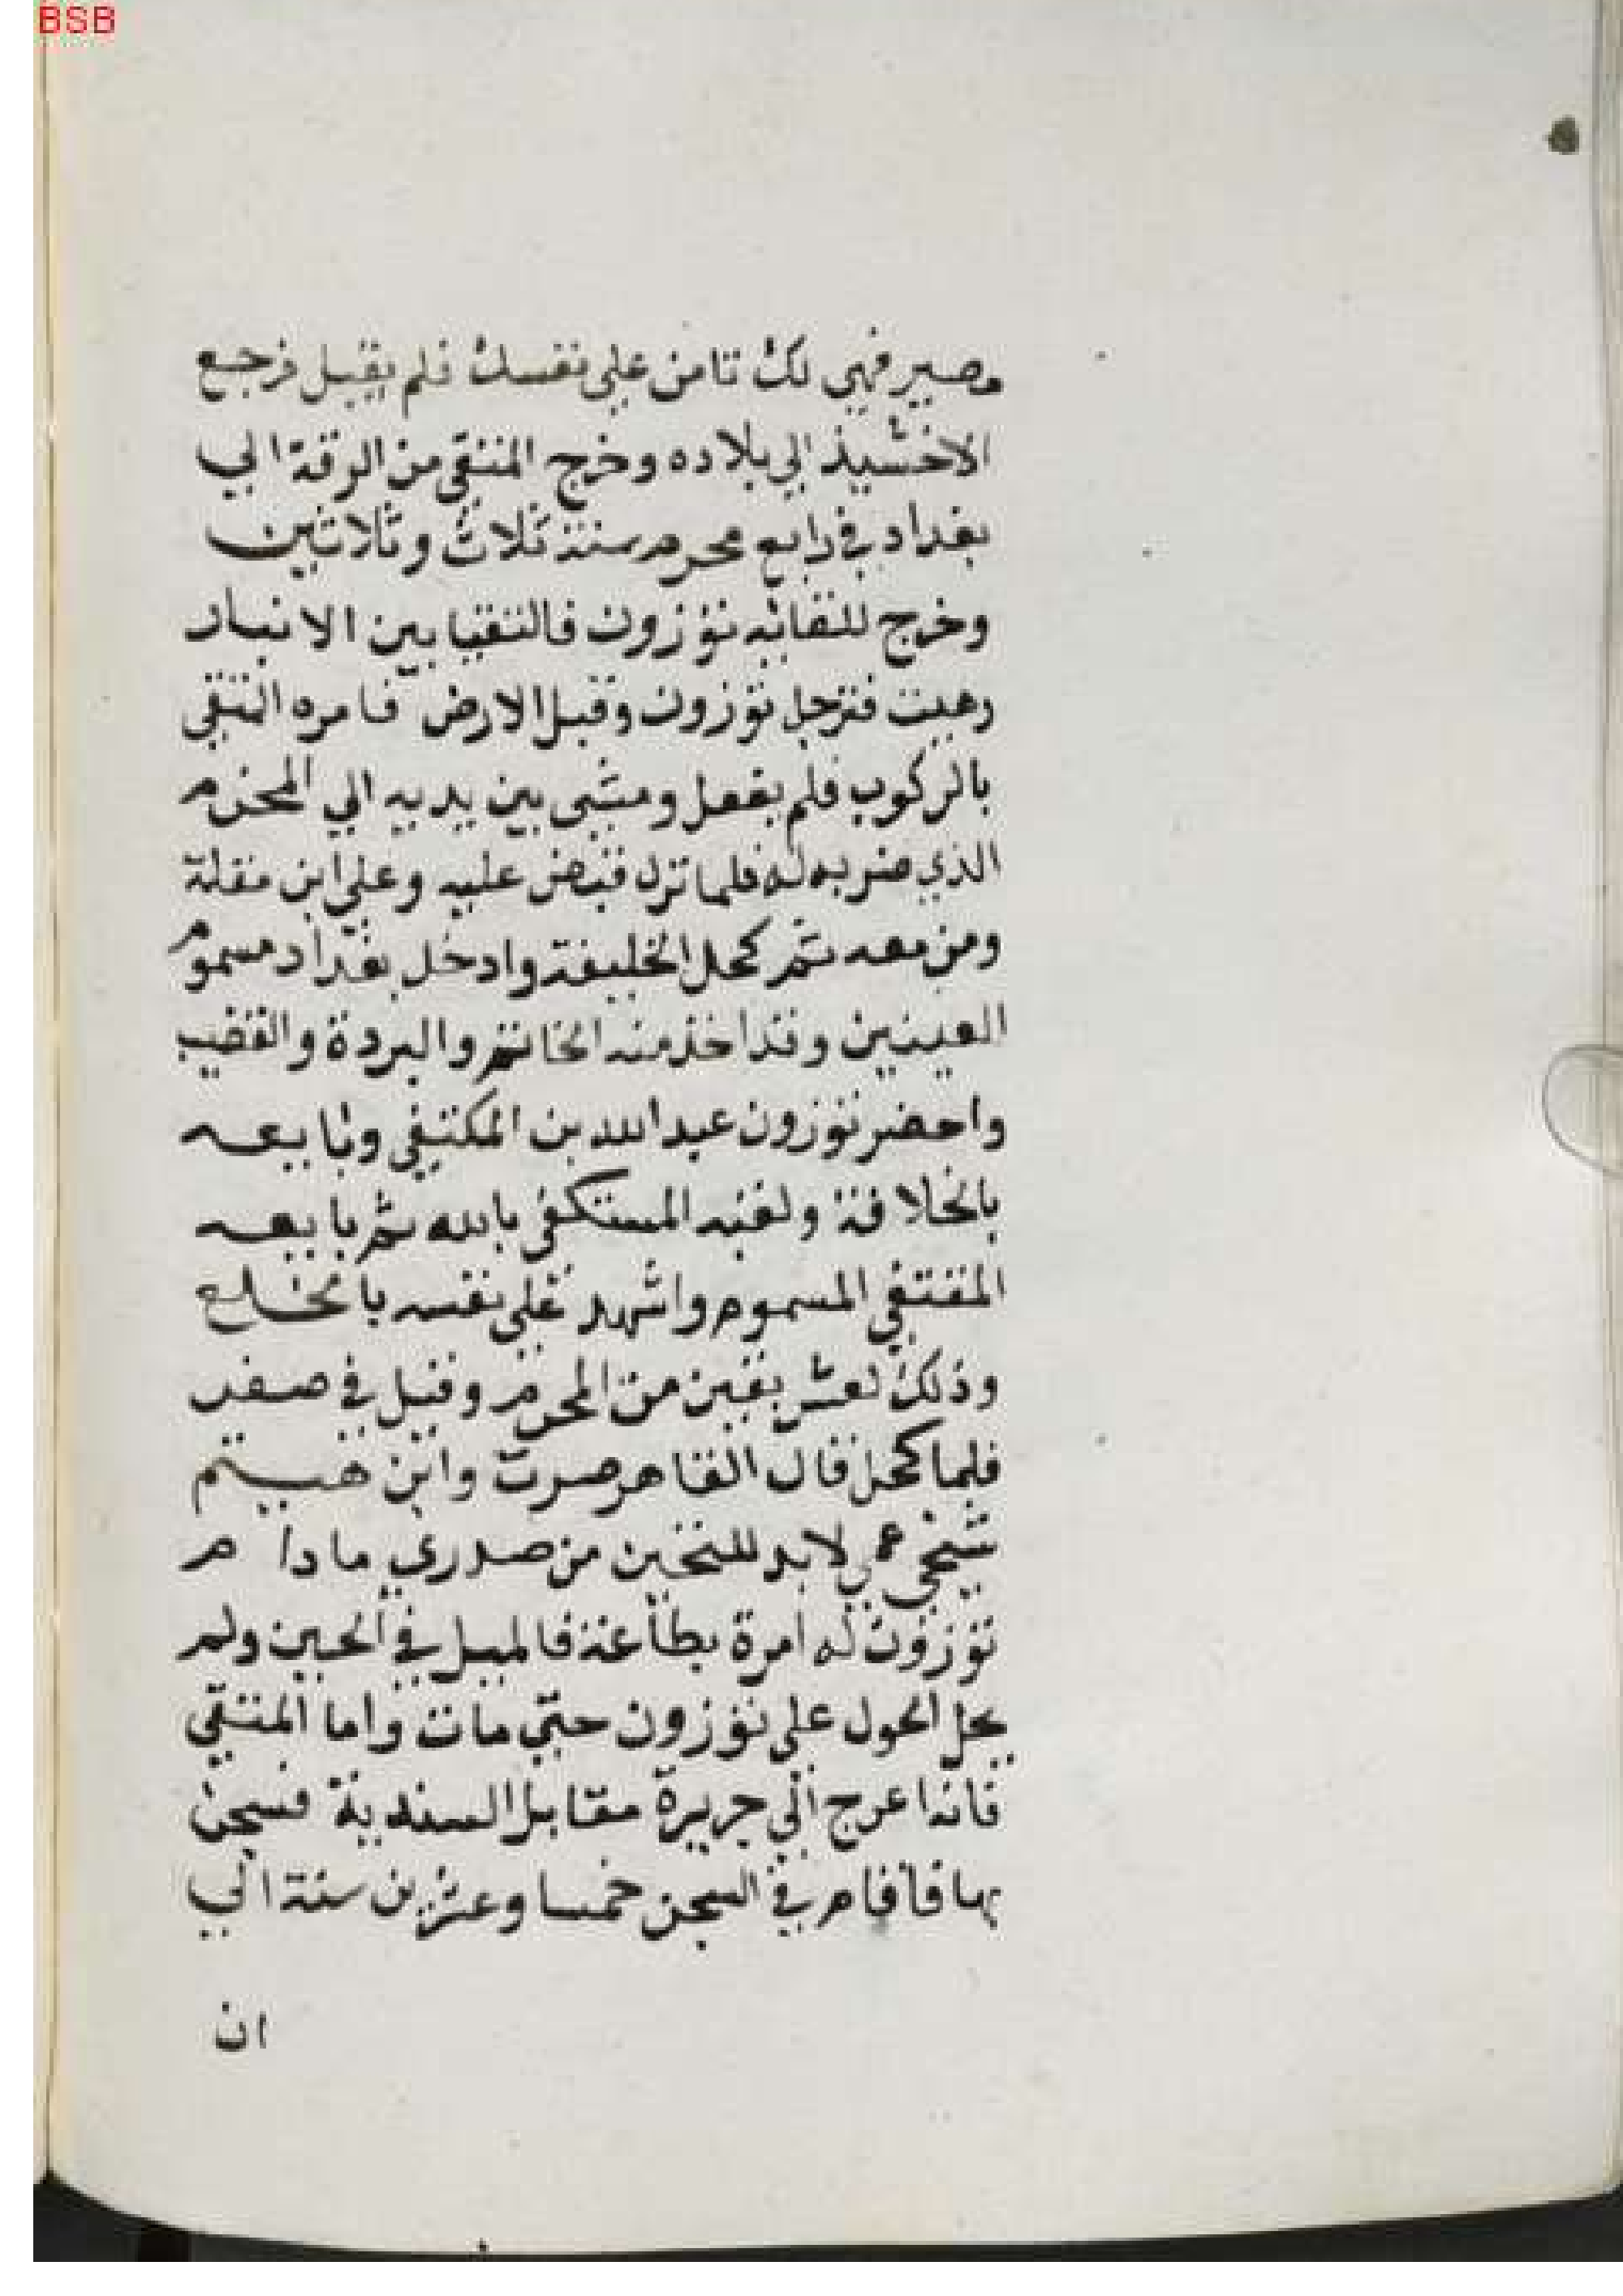 BSB
مصير فهي لك تامن على نفسك فلم يقبل فرجع
الاخشيذ الي بلاده وخرج المتقي من الرقة الي
بغداد في رابع محرم سنة ثلاث وثلاثين
وخرج للقائه توزون فالتقيا بين الانبار
وهيت فترجل توزون وقبل الارض فامره المتقي
بالركوب فلم يفعل ومشي بين يديه الي المخزم
الذي ضربه له فلما نزل قبض عليه وعلي ابن مقلة
ومن معه ثم كحل الخليفة وادخل بغداد مسموم
العينين وقد اخذ منه الخاتم والبردة والقضيب
واحضر توزون عبد الله بن المكتفي وبايعه
بالخلافة ولقبه المستكفي بالله ثم بايعه
المقتفي المسموم واشهد على نفسه بالخلع
وذلك لعشر بقين من المحرم وقيل في صفر
فلما كحل قال القاهر صرت وابن
شيخي عمي لابد من صدري مادام
توزون له امرة بطاعة فالميل في الحين ولم
يحل الحول على توزون حتي مات واما المتقي
فانه اعرج الي جزيرة مقابل السندية فسجن
بها فاقام في السجن خمسا وعشرين سنة الي
ان